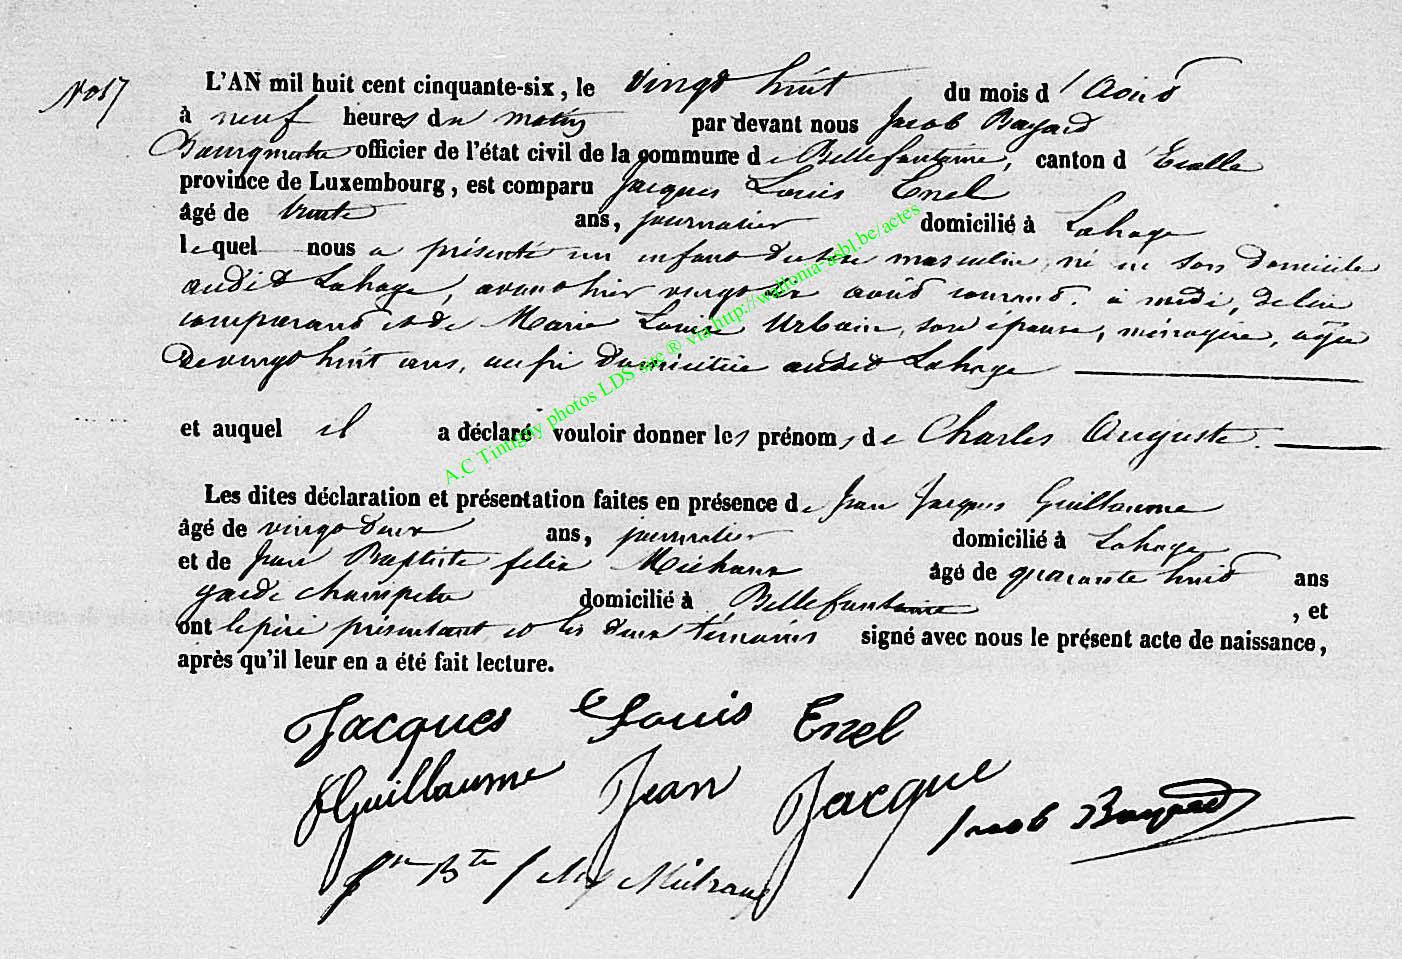 No 57
L'AN mil huit cent cinquante-six, le vingt huit du mois d'Aout
à neuf heures du matin par devant nous Jacob Bayard
Bourgmestre officier de l'état civil de la commune de Bellefontaine, canton d'Etalle
province de Luxembourg, est comparu Jacques Louis Enel
âgé de trente ans, journalier domicilié à Lahage
lequel nous a présenté un enfant du sexe masculin, né en son domicile
audit Lahage, avant hier vingt six août courant à midi, de lui
comparant et de Marie Louise Urbain, son épouse, ménagère, agée
de vingt huit ans, aussi domiciliée audit Lahage
et auquel il a déclaré vouloir donner les prénoms de Charles Auguste.
Les dites déclaration et présentation faites en présence de Jean Jacques Guillaume
âgé de vingt deux ans, journalier domicilié à Lahage
et de Jean Baptiste felix Michaux âgé de quarante huit ans
garde champetre domicilié à Bellefontaine, et
ont le père présentant et les deux témoins signé avec nous le présent acte de naissance,
après qu'il leur en a été fait lecture.
Jacques Louis Enel
Guillaume Jean Jacque
Jacob Bayard
Jn Bte felix Michaux
A.C Tintigny photos LDS site ® via http://wallonia-asbl.be/actes